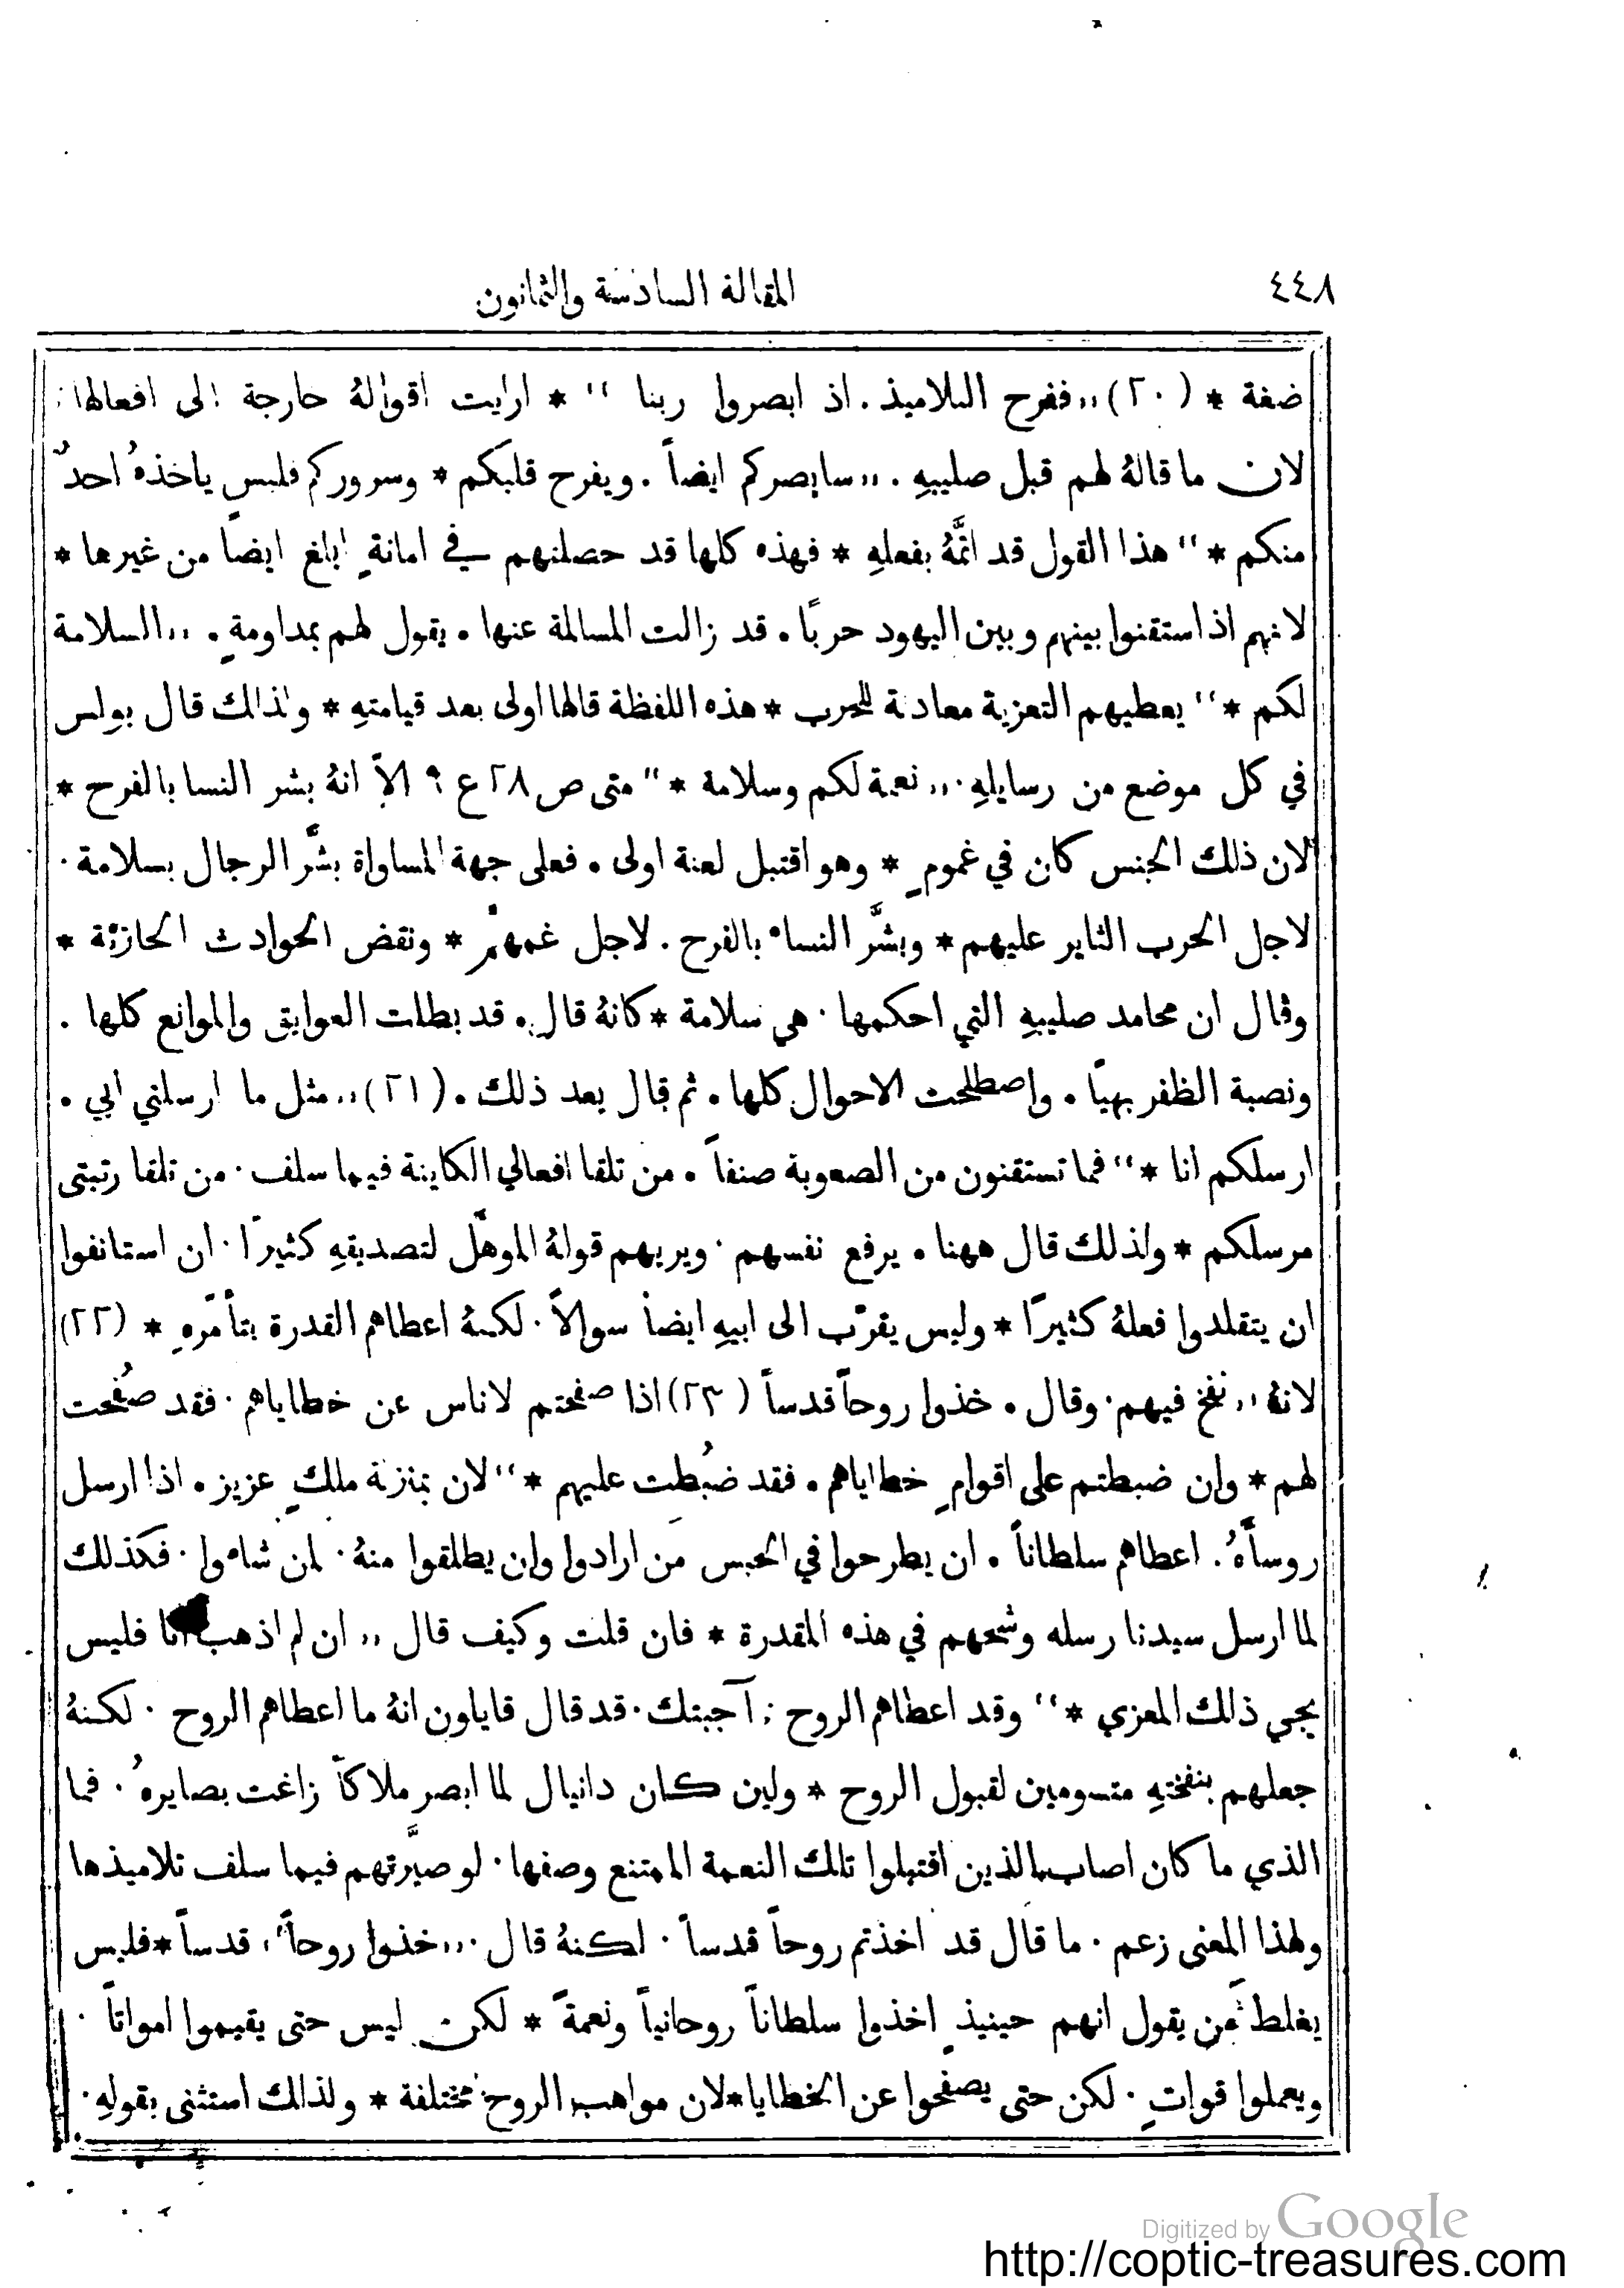 ٤٤٨ المقالة السادسة والثمانون
ضفة * (٢٠) ,,ففرح التلاميذ. اذ ابصروا ربنا '' * ارايت اقوالهُ خارجة الى افعالها:
لان ما قالهُ لهم قبل صليبهِ. ,,سابصركم ايضاً. ويفرح قلبكم * وسروركم فليس ياخذهُ احدٌ
منكم * '' هذا القول قد اتمَّهُ بفعلهِ * فهذه كلها قد حصلتهم في امانةٍ ابلغ ايضاً من غيرها *
لانهم اذ استقنوا بينهم وبين اليهود حربًا. قد زالت المسالمة عنها. يقول لهم بمداومةٍ. ,,السلامة
لكم * '' يعطيهم التعزية معادلة للحرب * هذه اللفظة قالها اولى بعد قيامتهِ * ولذلك قال بولس
في كل موضع من رسايلهِ. ,,نعمة لكم وسلامة * '' متى ص ٢٨ ع ٩ الاّ انهُ بشر النسا بالفرح *
لان ذلك الجنس كان في غمومٍ * وهو اقتبل لعنة اولى. فعلى جهة المساواة بشَّر الرجال بسلامة.
لاجل الحرب الثاير عليهم * وبشَّر النساء بالفرح. لاجل غمهنَّ * ونقض الحوادث الحازنة *
وقال ان محامد صليبهِ التي احكمها. هي سلامة * كانهُ قال. قد بطلت العوايق والموانع كلها.
ونصبة الظفر بهيًا. واصطلحت الاحوال كلها. ثم قال بعد ذلك. (٢١) ,,مثل ما ارسلني ابي.
ارسلكم انا * '' فما تستقنون من الصعوبة صنفاً. من تلقا افعالي الكاينة فيما سلف. من تلقا رتبتى
مرسلكم * ولذلك قال ههنا. يرفع نفسهم. ويريهم قولهُ الموهَّل لتصديقهِ كثيرًا. ان استانفوا
ان يتقلدوا فعلهُ كثيرًا * وليس يقرّب الى ابيهِ ايضاً سوالاً. لكنهُ اعطاهم القدرة بتأمّرهِ * (٢٢)
لانهُ ,,نفخ فيهم. وقال. خذوا روحاً قدساً (٢٣) اذا صفحتم لاناس عن خطاياهم. فقد صُفحت
لهم * وان ضبطتم على اقوامٍ خطاياهم. فقد ضُبطت عليهم * '' لان بمنزلة ملكٍ عزيز. اذا ارسل
روسأهُ. اعطاهم سلطاناً. ان يطرحوا في الحبس مَن ارادوا وان يطلقوا منهُ. لمن شاءوا. فكذلك
لما ارسل سيدنا رسله وشحهم في هذه المقدرة * فان قلت وكيف قال ,,ان لم اذهب انا فليس
يجي ذلك المعزي * '' وقد اعطاهم الروح: آجبتك. قد قال قايلون انهُ ما اعطاهم الروح. لكنهُ
جعلهم بنفختهِ متسومين لقبول الروح * ولين كان دانيال لما ابصر ملاكاً زاغت بصايرهُ. فما
الذي ما كان اصاب الذين اقتبلوا تلك النعمة الممتنع وصفها. لو صيَّرتهم فيما سلف تلاميذها
ولهذا المعنى زعم. ما قال قد اخذتم روحاً قدساً. لكنهُ قال. ,,خذوا روحاً'' قدساً * فليس
يغلط مَن يقول انهم حينيذٍ اخذوا سلطاناً روحانياً ونعمةً * لكن ليس حتى يقيموا امواتاً.
ويعملوا قواتٍ. لكن حتى يصفحوا عن الخطايا * لان مواهب الروح مختلفة * ولذلك استثنى بقولهِ.
Digitized by Google
http://coptic-treasures.com